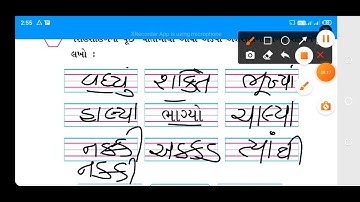 2:55
XRecorder App is using microphone
લખો :
વધ્યું શક્તિ ભૂખ્યાં
હાલ્યા ભાગ્યો ચાલ્યા
નક્કી અક્કડ ત્યાંથી
નક્કી